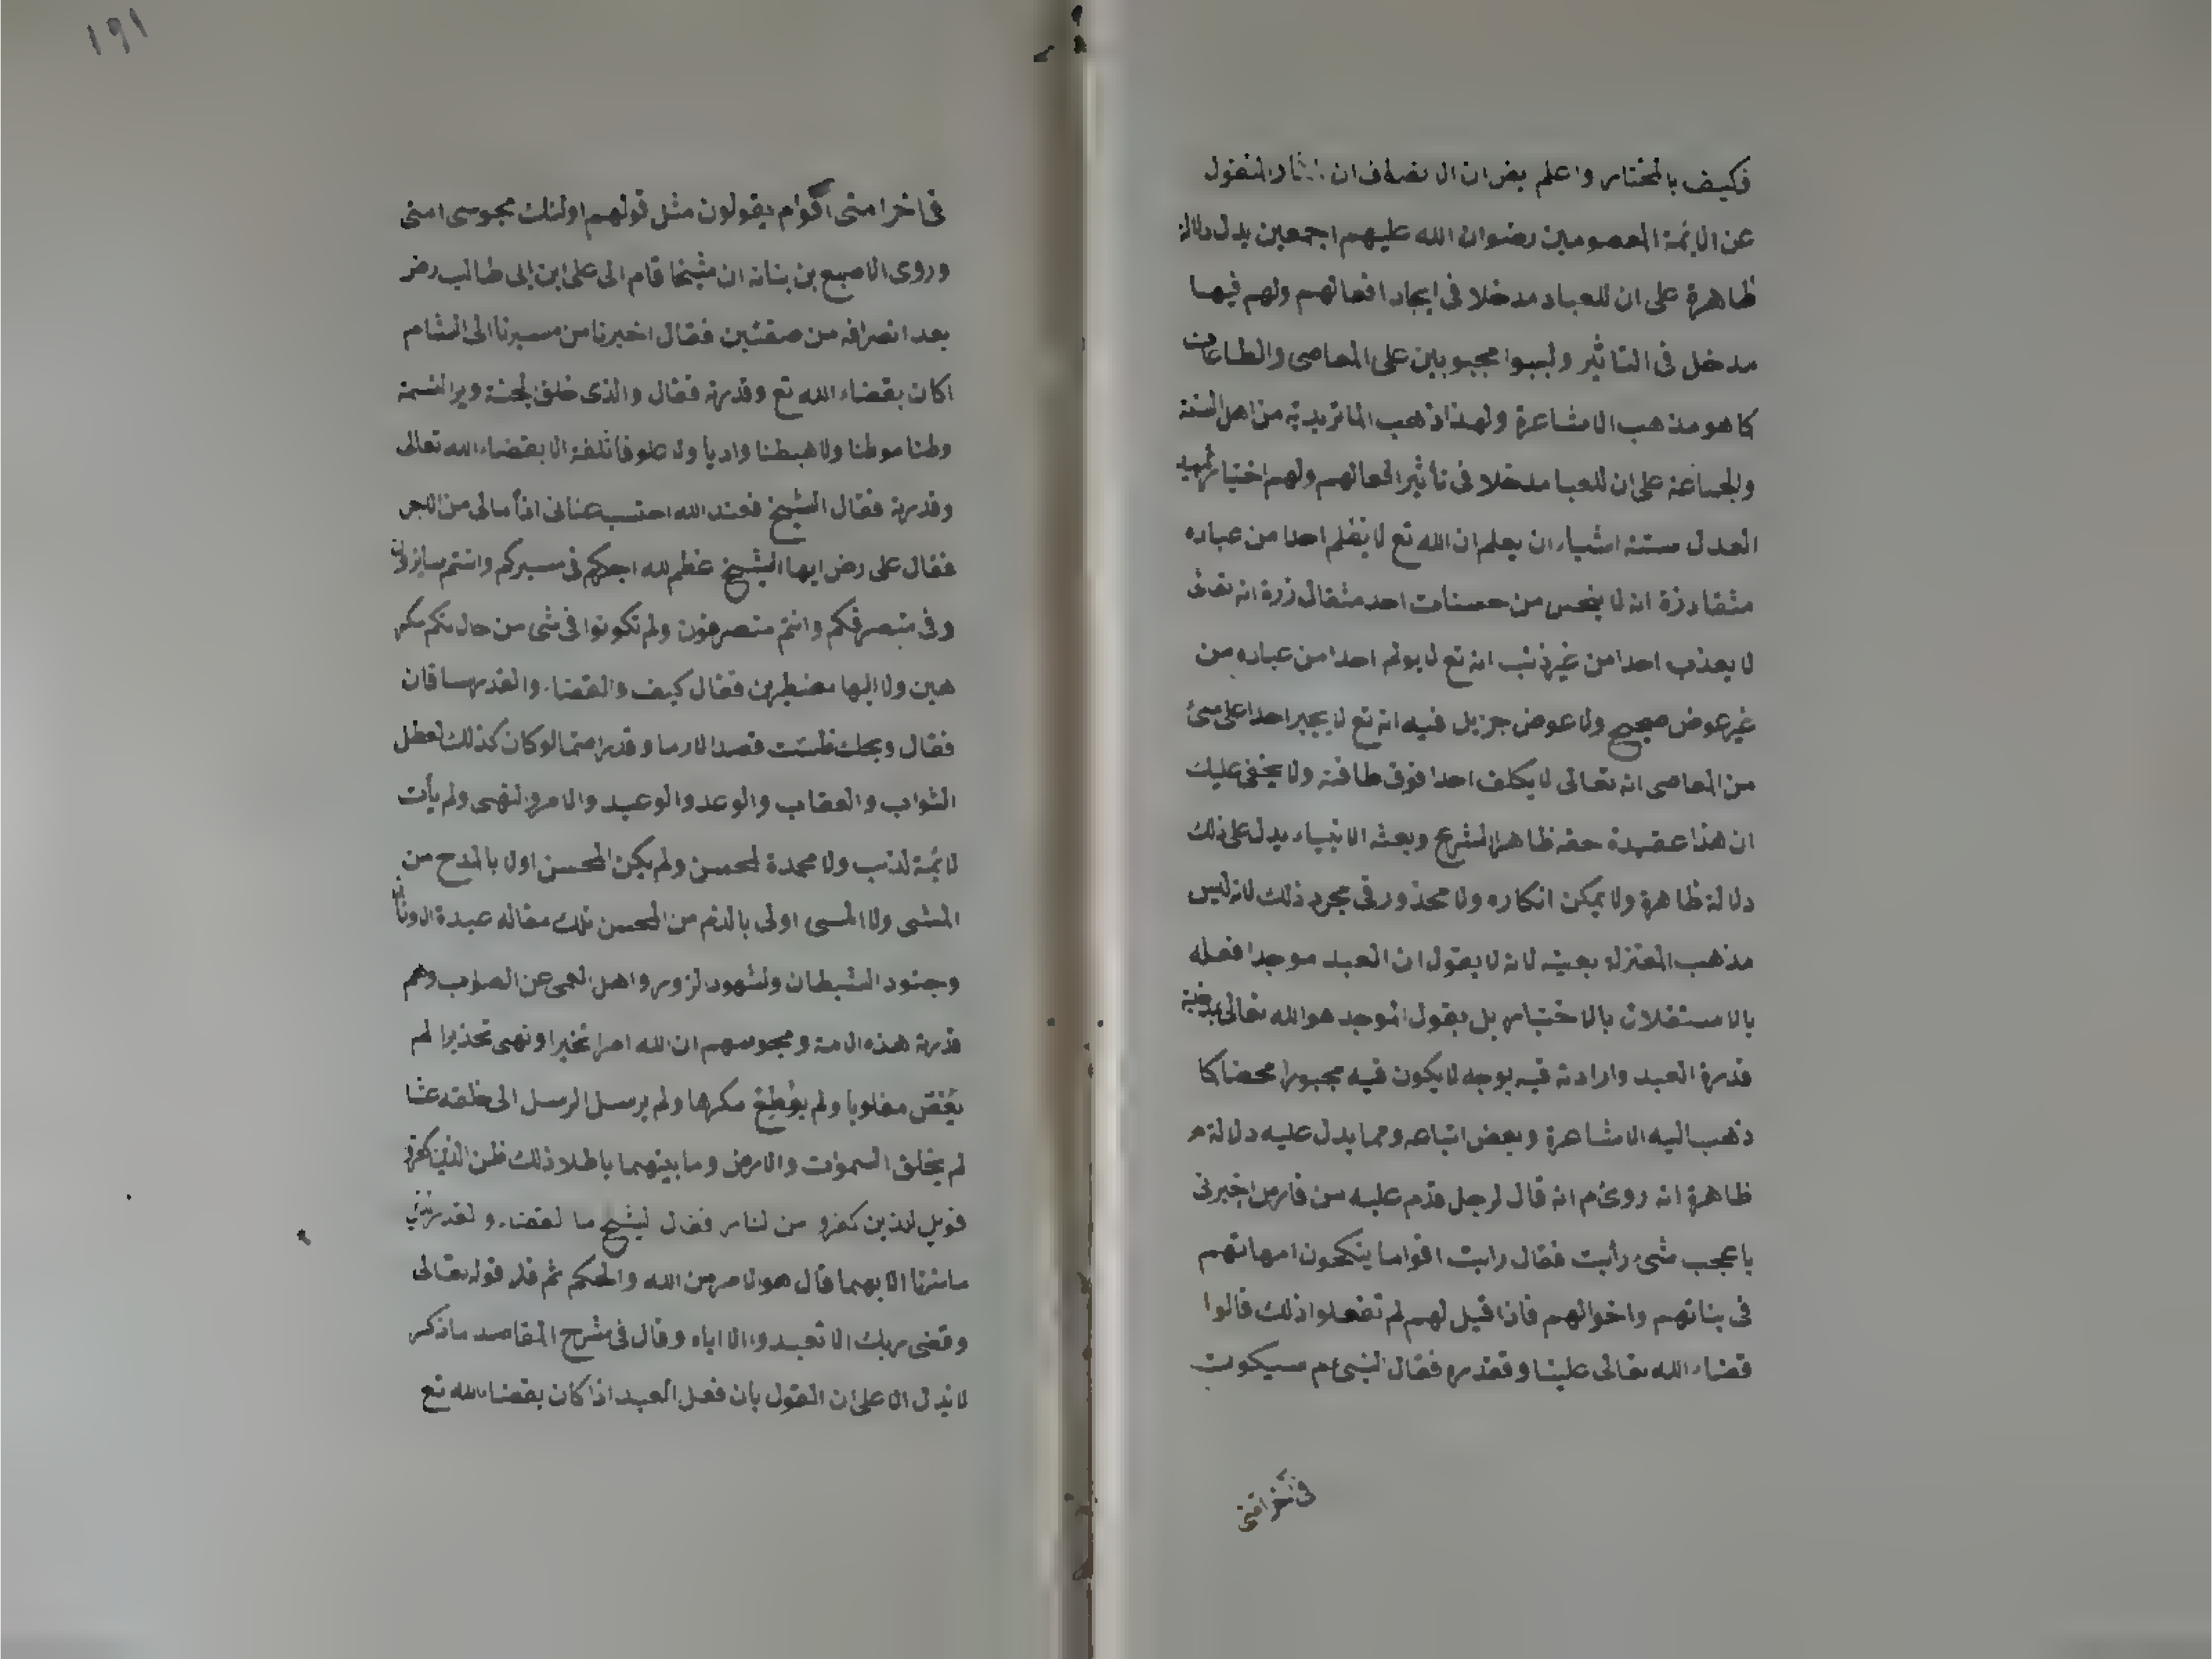 فكيف بالمختار واعلم بعران الانصاف ان المنقول
عن الايمة المعصومين رضوان الله عليهم اجمعين يدل دلالة
ظاهرة على ان للعباد مدخلا فى ايجاد افعالهم ولهم فيها
مدخل فى التاثير وليسوا مجبوبين على المعاصى والطاعات
كما هو مذهب الاشاعرة ولهذا ذهب الماتريدية من اهل السنة
والجماعة على ان للعبا مدخلا فى تأثير افعالهم ولهم اختيار
العدل ستة اشياء ان يعلم ان الله تع لا يظلم احدا من عباده
مثقاد ذرة انه لا يبخس من حسنات احد مثقال ذرة انه تعالى
لا يعذب احدا من غير ذنب انه تع لا يولم احدا من عباده من
غير عوض صحيح ولا عوض جزيل فيه انه تع لا يجبر احدا على شئ
من المعاصى انه تعالى لا يكلف احدا فوق طاقته ولا يخفى عليك
ان هذا عقيدة حقه ظاهر الشرع وبعثه الانبياء يدل على ذلك
دلالة ظاهرة ولا يمكن انكاره ولا محذور فى مجرد ذلك لانه ليس
مذهب المعتزلة بعينه لانه لا يقول ان العبد موجدا فعله
بالاستقلان بالاختيار بل يقول الموجد هو الله تعالى
قدرة العبد وارادته فيه بوجه لا يكون فيه مجبورا محضا كما
ذهب اليه الاشاعرة وبعض اتباعه ومما يدل عليه دلالة
ظاهرة انه روى م انه قال لرجل قدم عليه من فارس اخبرنى
باعجب شئ رأيت فقال رايت اقواما ينكحون امهاتهم
فى بناتهم واخوالهم فاذا قيل لهم لم تفعلوا ذلك قالوا
قضاء الله تعالى علينا وقدره فقال النبى م سيكون
فى اخر امتى
١٩١
فى اخر امتى اقوام يقولون مثل قولهم اولئك مجوسى امتى
وروى الاصبع بن بناته ان شيخا قام الى على ابن ابى طالب رضر
بعد انصرافه من صفين فقال اخبرنا من مسيرنا الى الشام
اكان بقضاء الله تع وقدره فقال والذى خلق الجنة وبرا النسمة
وطنا موطنا ولا هبطنا واديا ولا علونا تلفة الا بقضاء الله تعالى
وقدره فقال الشيخ فعند الله احتسب عنانى اذا مالى من الاجر
فقال على رض ايها الشيخ عظم لله اجركم فى مسيركم وانتم سايرون
وفى منصرفكم وانتم منصرفون ولم تكونوا فى شى من حالتكم مكر
هين ولا اليها مضطرين فقال كيف والقضاء والقدر ساقان
فقال ويحك ظننت قصدا لازما وقدرا حتما لو كان كذلك لعطل
الثواب والعقاب والوعد والوعيد والامر والنهى ولم يأت
لائمة لذنب ولا محمدة لمحسن ولم يكن المحسن اولا بالمدح من
المسى ولا المسى اولى بالذم من المحسن تلك مقاله عبدة الاوثان
وجنود الشيطان وشهود لزور واهل العمى عن الصواب وهم
قدرية هذه الامة ومجوسهم ان الله امر تخيرا ونهى تحذيرا لم
يعض مغلوبا ولم يطع مكرها ولم يرسل الرسل الى خلقه عبثا
لم يخلق السموات والارض وما بينهما باطلا ذلك ظن الذين كفروا
فويل للذين كفرو من لنار فقال لشيخ ما لقضاء ولقدر
ماسرنا الا بهما قال هو لامر من الله والحكم ثم قلر قوله تعالى
وقضى ربك الا تعبدوا الا اياه وقال فى شرح المقاصد ماذكر
لا يدل الا على ان القول بان فعل العبد اذا كان بقضاء الله تع